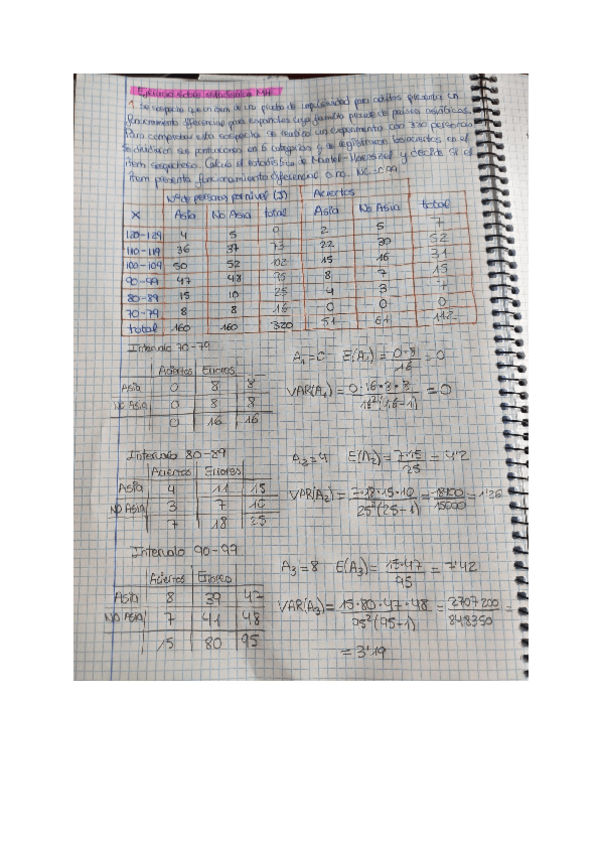 Ejercicio sobre estadístico MH
1. Se sospecha que un ítem de una prueba de impulsividad para adultos presenta un
funcionamiento diferencial para españoles cuya familia procede de países asiáticos.
Para comprobar esta sospecha se realizó un experimento con 320 personas
Se dividieron sus puntuaciones en 6 categorías y se registraron los aciertos en el
ítem sospechoso. Calcula el estadístico de Mantel-Haenszel y decide si el
ítem presenta funcionamiento diferencial o no. NC=0'99
Nº de personas por nivel (J) Aciertos
X Asia No Asia total Asia No Asia total
120-129 4 5 9 2 5 7
110-119 36 37 73 22 30 52
100-104 50 52 102 15 16 31
90-99 47 48 95 8 7 15
80-89 15 10 25 4 3 7
70-79 8 8 16 0 0 0
total 160 160 320 51 61 112
Intervalo 70-79
A₁=0 E(A₁)= 0·8/16 = 0
Aciertos Errores
Asia 0 8 8
No Asia 0 8 8
0 16 16
VAR(A₁)= 0·16·8·8/16²(16-1) = 0
Intervalo 80-89
A₂=4 E(A₂)= 7·15/25 = 4'2
Aciertos Errores
Asia 4 11 15
No Asia 3 7 10
7 18 25
VAR(A₂)= 7·18·15·10/25²(25-1) = 18900/15000 = 1'26
Intervalo 90-99
A₃=8 E(A₃)= 15·47/95 = 7'42
Aciertos Errores
Asia 8 39 47
No Asia 7 41 48
15 80 95
VAR(A₃)= 15·80·47·48/95²(95-1) = 2707200/848350 =
= 3'19